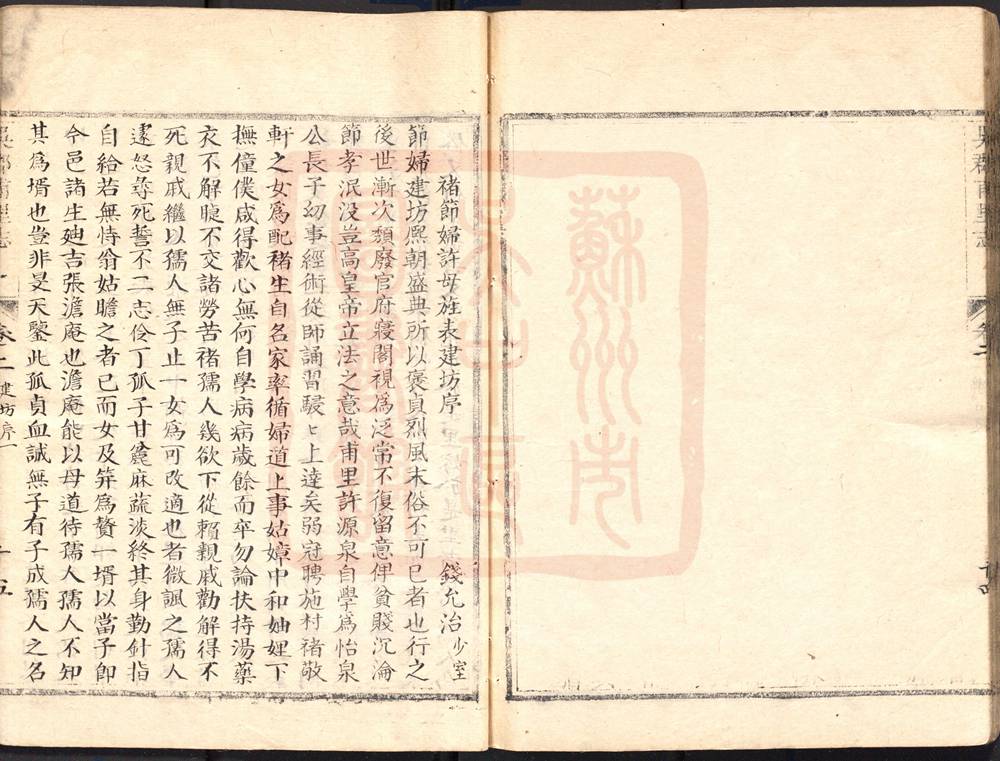 吳郡甫里志
卷二
十四
褚節婦許母旌表建坊序
錢允治少室
節婦建坊熈朝盛典所以褒貞烈風末俗不可已者也行之
後世漸次頹廢官府寢閣視為泛常不復留意俾貧賤沉淪
節孝泯没豈高皇帝立法之意哉甫里許源泉自學為怡泉
公長子幼事經術從師誦習駸〻上達矣弱冠聘施村褚敬
軒之女為配褚生自名家率循婦道上事姑嫜中和妯娌下
撫僮僕咸得歡心無何自學病病歲餘而卒勿論扶持湯藥
衣不解睫不交諸勞苦褚孺人幾欲下從賴親戚勸解得不
死親戚繼以孺人無子止一女為可改適也者微諷之孺人
遽怒尋死誓不二志伶丁孤子甘麄麻蔬淡終其身勤針指
自給若無恃翁姑瞻之者已而女及笄為贅一壻以當子即
今邑諸生廸吉張澹庵也澹庵能以母道待孺人孺人不知
其為壻也豈非旻天鑒此孤貞血誠無子有子成孺人之名
吳郡甫里志
卷二
建坊序一
十五